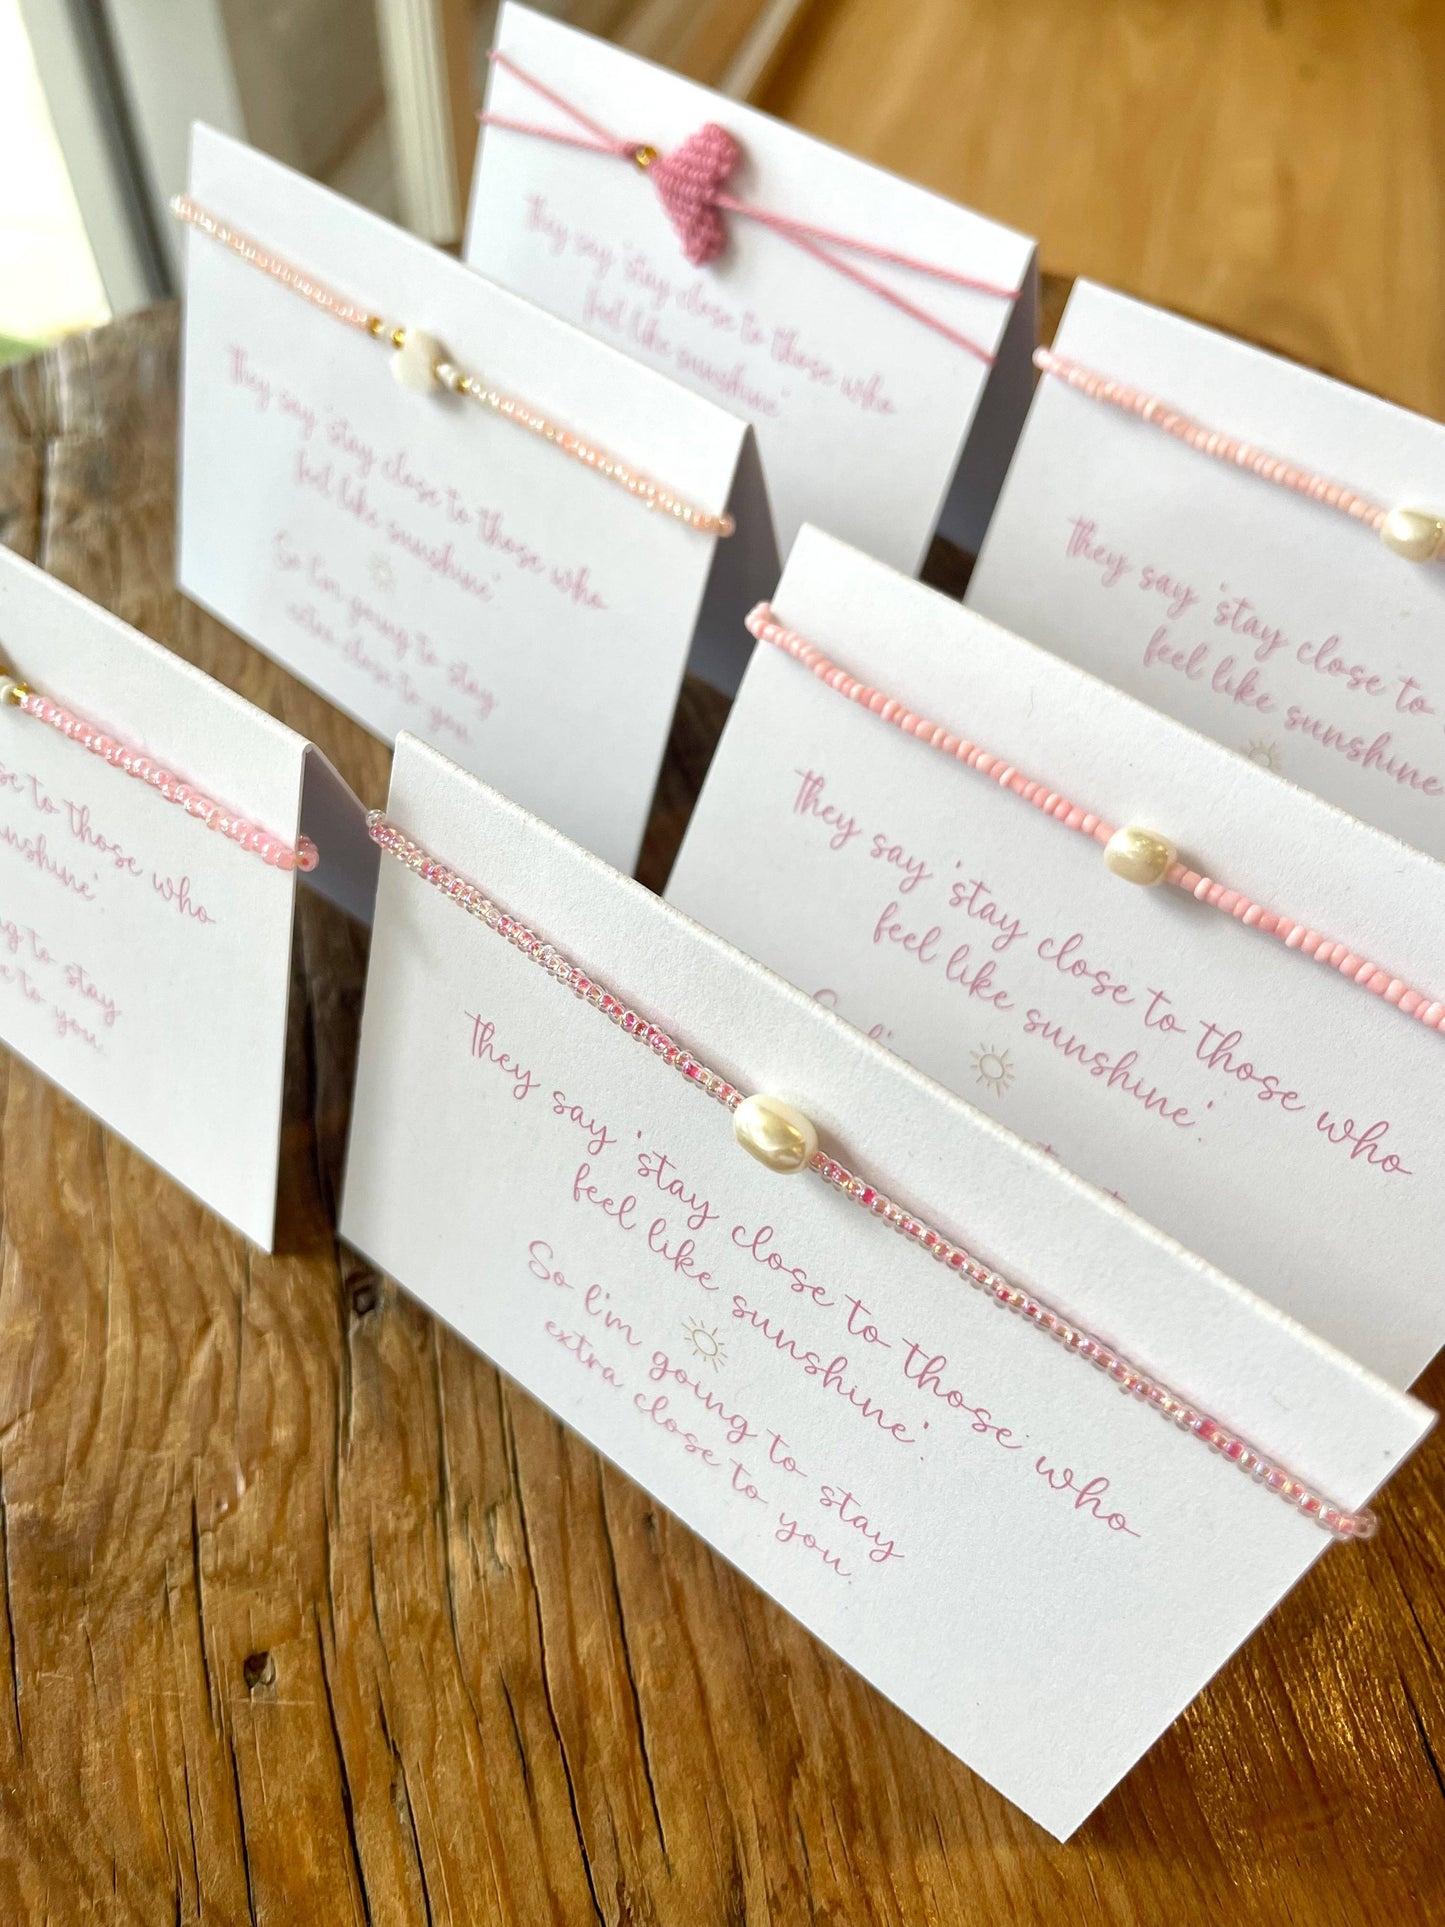 They say 'stay close to those who
feel like sunshine'
They say 'stay close to those who
feel like sunshine'
So I'm going to stay
extra close to you.
They say 'stay close to
feel like sunshine
They say 'stay close to those who
feel like sunshine'.
to those who
sunshine'.
to stay
to you.
They say 'stay close to those who
feel like sunshine'.
So I'm going to stay
extra close to you.